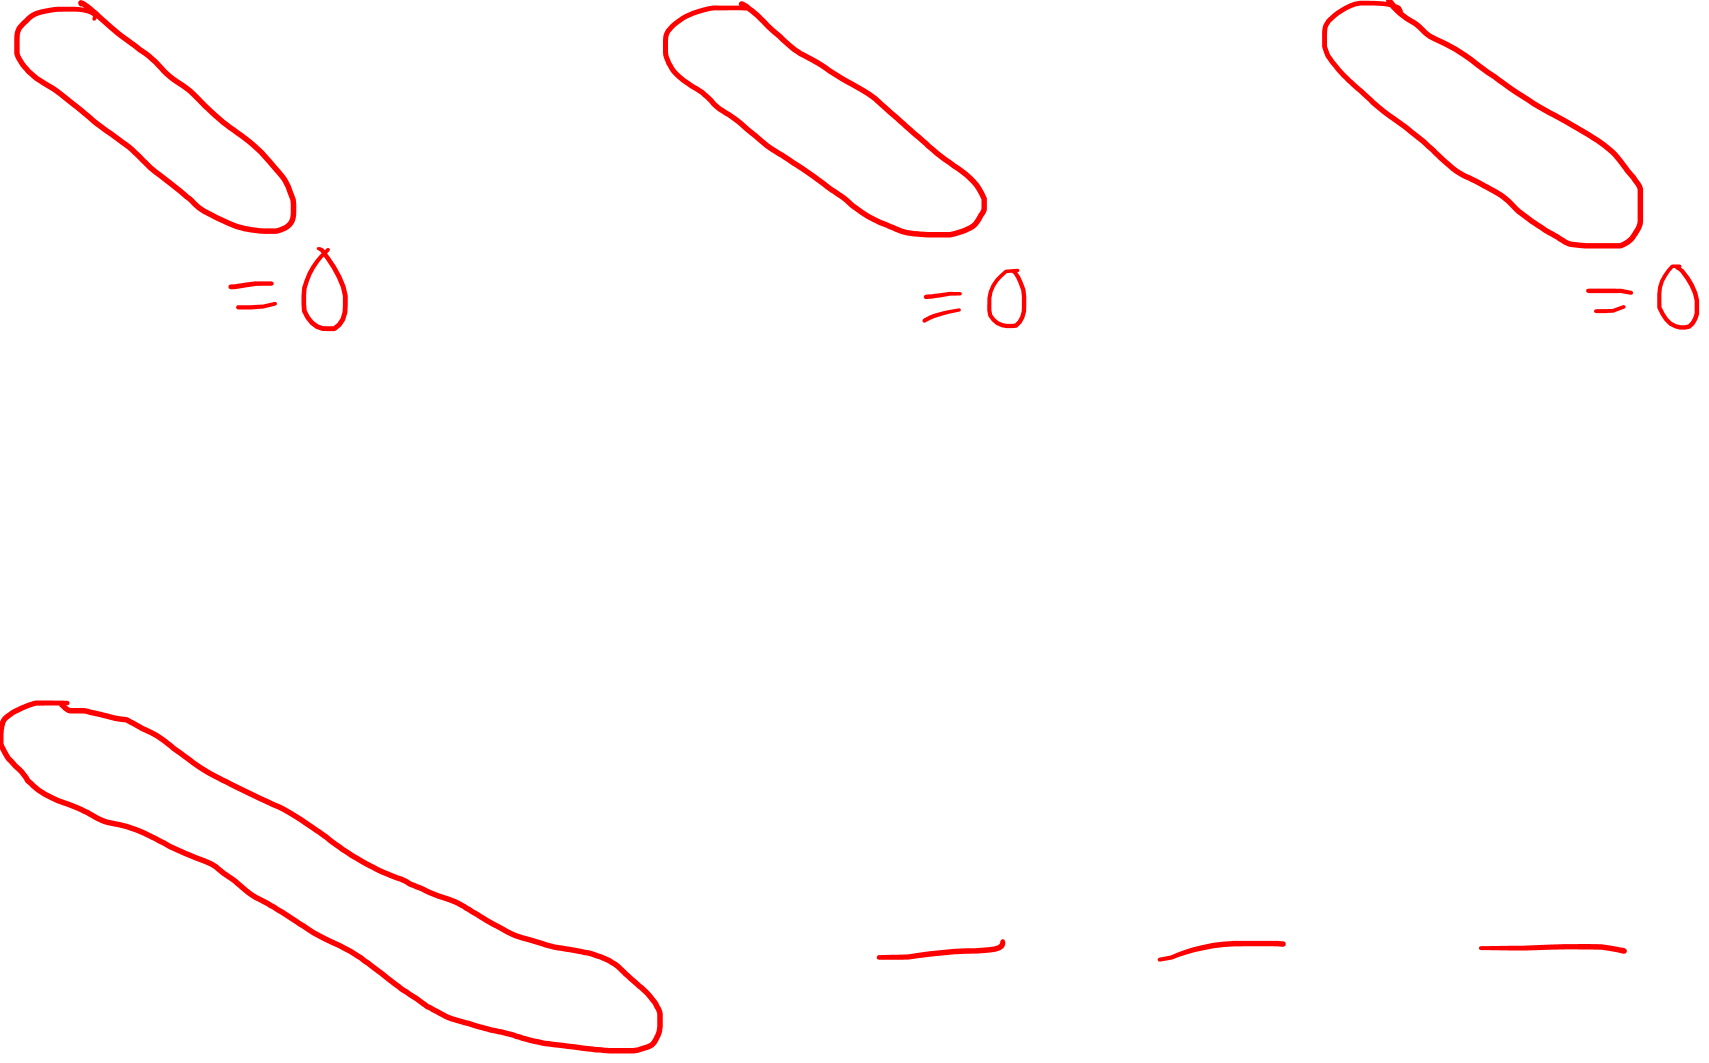 = 0 = 0 = 0